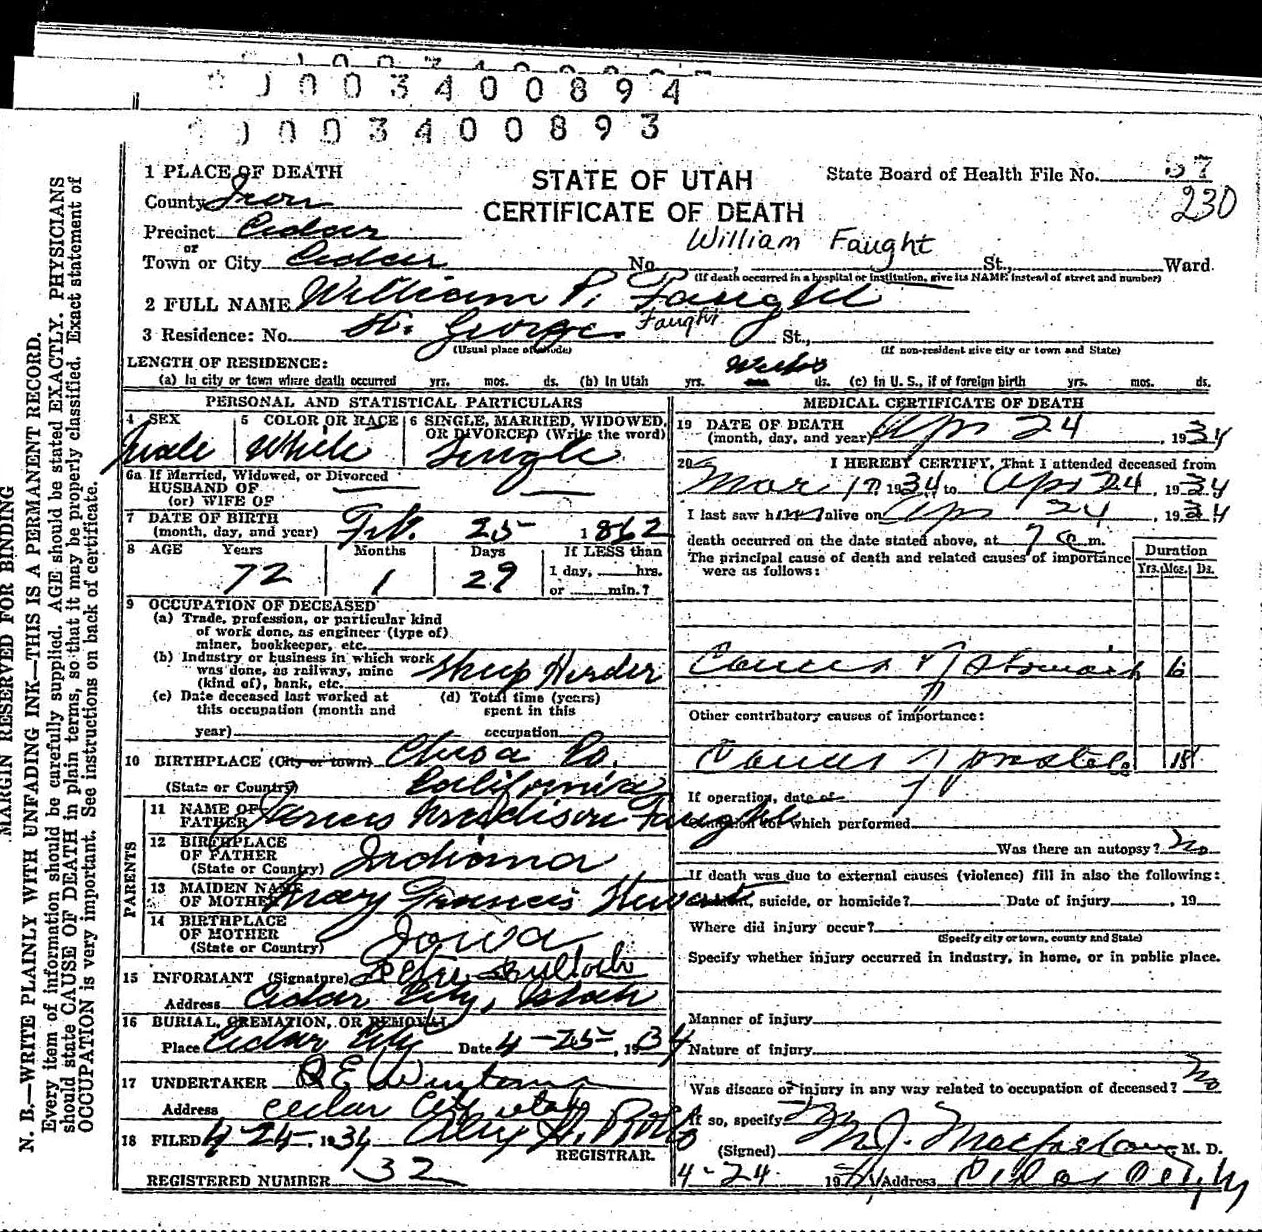 0003400894
0003400893
1 PLACE OF DEATH
STATE OF UTAH
CERTIFICATE OF DEATH
State Board of Health File No. 37
230
County Iron
Precinct Cedar
or
Town or City Cedar No. St., Ward
William Faught
(If death occurred in a hospital or institution, give its NAME instead of street and number)
2 FULL NAME William P. Faught
Faught
3 Residence: No. St. George St.,
(Usual place of abode) (If non-resident give city or town and State)
LENGTH OF RESIDENCE:
(a) In city or town where death occurred yrs. mos. ds. (b) In Utah yrs. Weeks ds. (c) In U.S., if of foreign birth yrs. mos. ds.
PERSONAL AND STATISTICAL PARTICULARS
4 SEX 5 COLOR OR RACE 6 SINGLE, MARRIED, WIDOWED, OR DIVORCED (Write the word)
Male White Single
6a If Married, Widowed, or Divorced
HUSBAND OF
(or) WIFE OF
7 DATE OF BIRTH
(month, day, and year) Feb. 25 1862
8 AGE Years Months Days If LESS than
72 1 29 1 day, hrs.
or min.?
9 OCCUPATION OF DECEASED
(a) Trade, profession, or particular kind
of work done, as engineer (type of)
miner, bookkeeper, etc.
(b) Industry or business in which work
was done, as railway, mine
(kind of), bank, etc. Sheep Herder
(c) Date deceased last worked at
this occupation (month and
year)
(d) Total time (years)
spent in this
occupation
10 BIRTHPLACE (City or town) Co.
(State or Country) California
PARENTS
11 NAME OF
FATHER Madison Faught
12 BIRTHPLACE
OF FATHER
(State or Country) Indiana
13 MAIDEN NAME
OF MOTHER Mary Francis
14 BIRTHPLACE
OF MOTHER
(State or Country) Iowa
15 INFORMANT (Signature) Bulloch
Address Cedar City, Utah
16 BURIAL, CREMATION, OR REMOVAL
Place Cedar City Date 4-25-, 1934
17 UNDERTAKER
Address Cedar City Utah
18 FILED 4-25-, 1934
REGISTRAR.
REGISTERED NUMBER 32
MEDICAL CERTIFICATE OF DEATH
19 DATE OF DEATH
(month, day, and year) Apr 24, 1934
20 I HEREBY CERTIFY, That I attended deceased from
Mar 17, 1934 to Apr 24, 1934
I last saw him alive on Apr 24, 1934
death occurred on the date stated above, at 7 a m.
The principal cause of death and related causes of importance
were as follows:
Duration
Yrs. Mos. Ds.
Cancer of Stomach 6
Other contributory causes of importance:
Cancer of prostate 18
If operation, date of
condition for which performed
Was there an autopsy? No
If death was due to external causes (violence) fill in also the following:
Accident, suicide, or homicide? Date of injury , 19
Where did injury occur?
(Specify city or town, county and State)
Specify whether injury occurred in industry, in home, or in public place.
Manner of injury
Nature of injury
Was disease or injury in any way related to occupation of deceased? No
If so, specify
(Signed) M. J. Macfarlane M. D.
4-24 1934 Address Cedar City
MARGIN RESERVED FOR BINDING
N. B.—WRITE PLAINLY WITH UNFADING INK—THIS IS A PERMANENT RECORD.
Every item of information should be carefully supplied. AGE should be stated EXACTLY. PHYSICIANS
should state CAUSE OF DEATH in plain terms, so that it may be properly classified. Exact statement of
OCCUPATION is very important. See instructions on back of certificate.